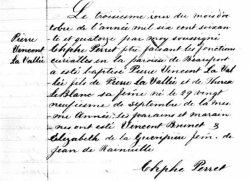 Le troisieme jour du mois d'oc
tobre de l'année mil six cent soixan
te et quatorze par moy soussigné
Pierre
Vincent
La Vallée
Chphe Perret ptre faisant les fonctions
curialles en la paroisse de Beauport
a esté baptisé Pierre Vincent La Val
lée fils de Pierre La Vallée et de Therese
Le Blanc sa femme né le 29 vingt
neufieme de septembre de la mes
me Année; les parains et marai
nes ont esté Vincent Brunet &
Elizabeth de la fem. de
Jean de Rainville
Chphe Perret